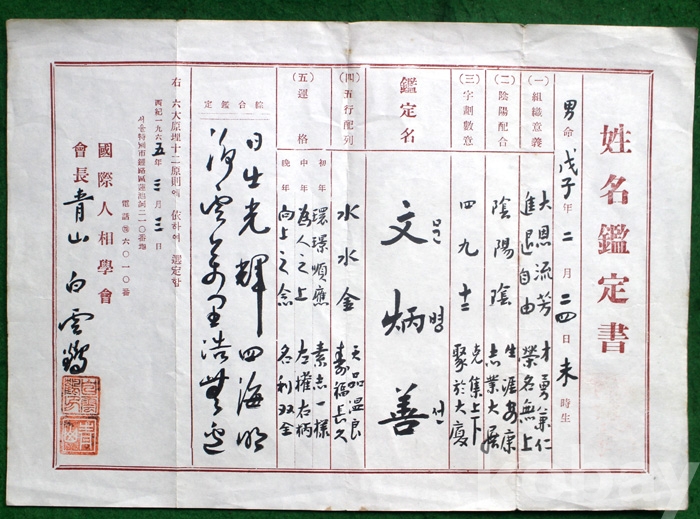 姓名鑑定書
男命戊子年二月二四日未時生
(一)組織意義
大恩流芳 才勇兼仁
進退自由 榮名無上
(二)陰陽配合
陰陽陰
生涯安康
志業大展
(三)字劃數意
四九十二
克集上下
聚於大廈
鑑定名
文炳善
문병선
(四)五行配列
水水金
天品溫良
壽福長久
(五)運格
初年 環璟順應 素志一樣
中年 為人之上 左權右柄
晩年 向上之念 名利双全
綜合鑑定
日生光輝四海明
浩
右 六大原理十二原則에 依하여 選定함
西紀一九六五年三月三日
서울特別市鍾路區
電話 六〇一〇番
國際人相學會
會長 靑山 白雲鶴